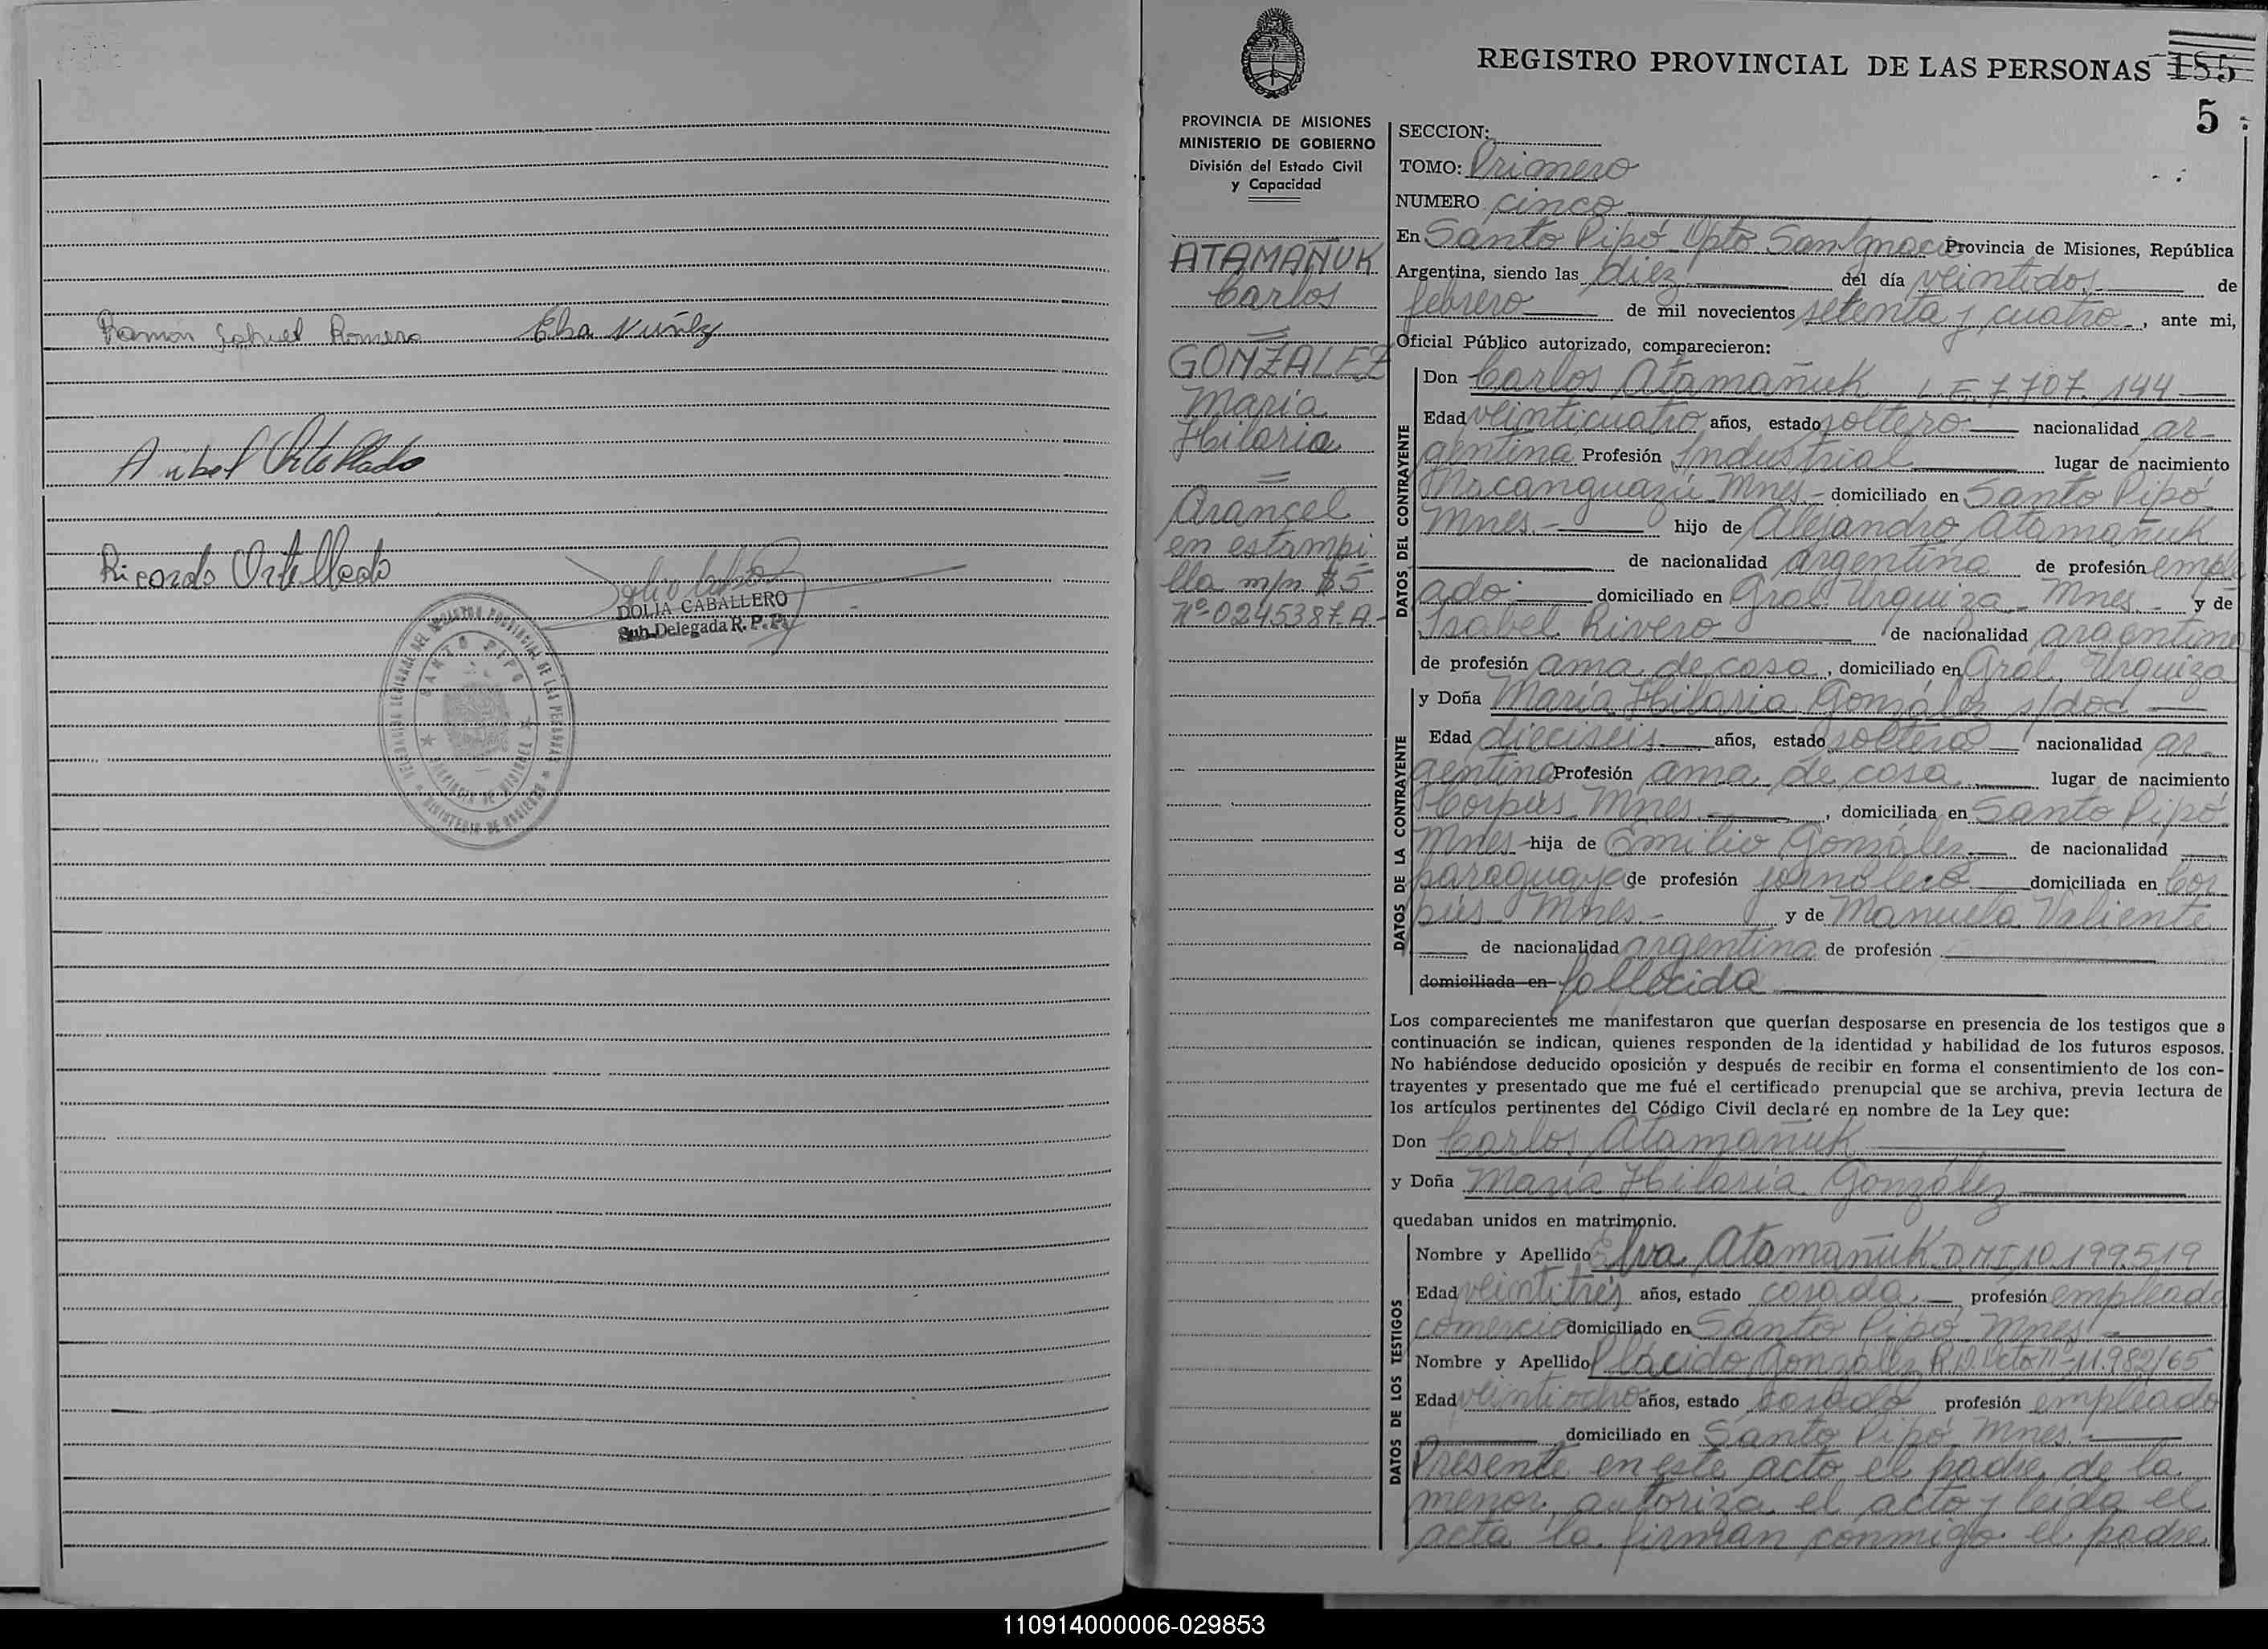 Ramón Gabriel Romero Elsa Nuñez
Anibal Ortellado
Ricardo Ortellado
DOLIA CABALLERO
Sub-Delegada R. P. P.
SANTO PIPO
MINISTERIO DE GOBIERNO
REGISTRO PROVINCIAL DE LAS PERSONAS 185
5
PROVINCIA DE MISIONES
MINISTERIO DE GOBIERNO
División del Estado Civil
y Capacidad
ATAMAÑUK
Carlos
GONZALEZ
María
Hilaria
Arancel
en estampi
lla m/n $5
Nº 0245387.A.-
SECCION:
TOMO: Primero
NUMERO cinco
En Santo Pipó Dpto San Ignacio Provincia de Misiones, República
Argentina, siendo las diez del día veintidos de
febrero de mil novecientos setenta y cuatro, ante mi,
Oficial Público autorizado, comparecieron:
DATOS DEL CONTRAYENTE
Don Carlos Atamañuk L.E. 7.707.144
Edad veinticuatro años, estado soltero nacionalidad ar-
gentina Profesión Industrial lugar de nacimiento
Mnes - domiciliado en Santo Pipó
Mnes.- hijo de Alejandro Atamañuk
de nacionalidad argentina de profesión emple
ado domiciliado en Gral Urquiza Mnes - y de
Isabel Rivero de nacionalidad argentina
de profesión ama de casa, domiciliado en Gral. Urquiza
DATOS DE LA CONTRAYENTE
y Doña María Hilaria González s/doc
Edad dieciseis años, estado soltera nacionalidad ar-
gentina Profesión ama de casa lugar de nacimiento
Corpus Mnes, domiciliada en Santo Pipó
Mnes - hija de Emilio González de nacionalidad
paraguaya de profesión jornalero domiciliada en Cor
pus Mnes - y de Manuela Valiente
de nacionalidad argentina de profesión
domiciliada en fallecida
Los comparecientes me manifestaron que querían desposarse en presencia de los testigos que a
continuación se indican, quienes responden de la identidad y habilidad de los futuros esposos.
No habiéndose deducido oposición y después de recibir en forma el consentimiento de los con-
trayentes y presentado que me fué el certificado prenupcial que se archiva, previa lectura de
los artículos pertinentes del Código Civil declaré en nombre de la Ley que:
Don Carlos Atamañuk
y Doña María Hilaria González
quedaban unidos en matrimonio.
DATOS DE LOS TESTIGOS
Nombre y Apellido Elva Atamañuk D.M.I 10.199.519
Edad veintitrés años, estado casada profesión empleada
comercio domiciliado en Santo Pipó Mnes
Nombre y Apellido Plácido Gonzalez R.D. Dcto Nº 11.982/65
Edad veintiocho años, estado casado profesión empleado
domiciliado en Santo Pipó Mnes.-
Presente en este acto el padre de la
menor autoriza el acto y leída el
acta la firman conmigo el padre
110914000006-029853